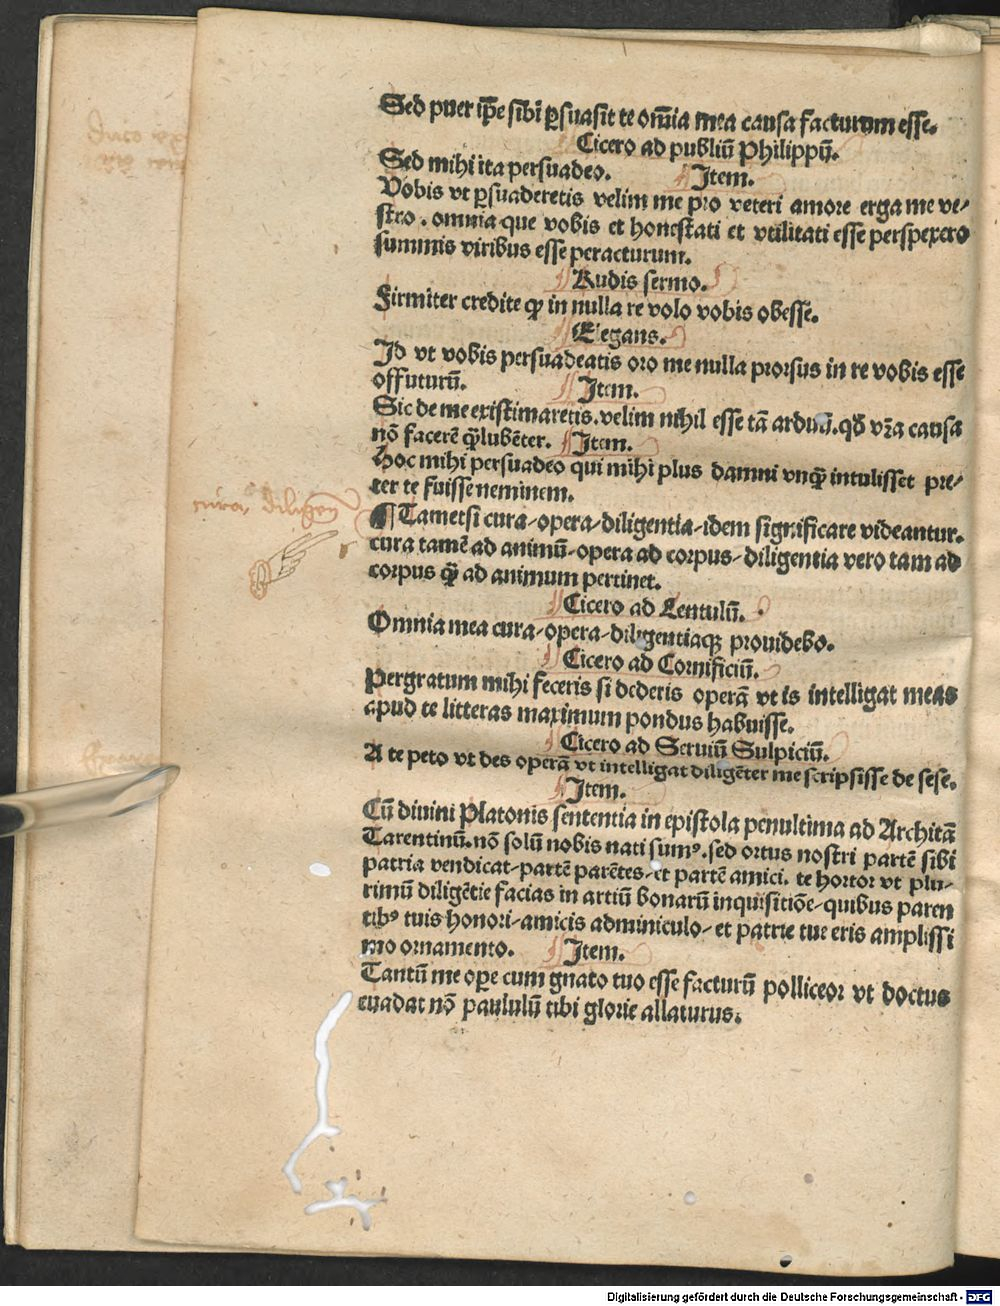 Sed puer ip̄e sibi ꝑsuasit te om̄ia mea causa facturum esse.
Cicero ad publiū Philippū.
Sed mihi ita persuadeo. Item.
Vobis vt ꝑsuaderetis velim me pro veteri amore erga me ve⸗
stro. omnia que vobis et honestati et vtilitati esse perspexero
summis viribus esse peracturum.
Rudis sermo.
Firmiter credite ꝙ in nulla re volo vobis obesse.
Elegans.
Id vt vobis persuadeatis oro me nulla prorsus in re vobis esse
offuturū. Item.
Sic de me existimaretis. velim nihil esse tā arduū. qd̄ vr̄a causa
nō facerē q̄lubēter. Item.
Hoc mihi persuadeo qui mihi plus damni vnq̄ intulisset pre⸗
ter te fuisse neminem.
cura, diligen
¶ Tametsi cura-opera-diligentia-idem significare videantur.
cura tamē ad animū-opera ad corpus-diligentia vero tam ad
corpus q̄ ad animum pertinet.
Cicero ad Lentulū.
Omnia mea cura-opera-diligentiaqꝫ prouidebo.
Cicero ad Cornificiū.
Pergratum mihi feceris si dederis operā vt is intelligat meas
apud te litteras maximum pondus habuisse.
Cicero ad Seruiū Sulpiciū.
A te peto vt des operā vt intelligat diligēter me scripsisse de sese.
Item.
Cū diuini Platonis sententia in epistola penultima ad Architā
Tarentinū. nō solū nobis nati sumꝰ. sed ortus nostri partē sibi
patria vendicat-partē parētes-et partē amici. te hortor vt plu-
rimū diligētie facias in artiū bonarū inquisitiōe-quibus paren
tibꝰ tuis honori-amicis adminiculo-et patrie tue eris amplissi
mo ornamento. Item.
Tantū me oꝑe cum gnato tuo esse facturū polliceor vt doctus
euadat nō paululū tibi glorie allaturus.
Digitalisierung gefördert durch die Deutsche Forschungsgemeinschaft - DFG